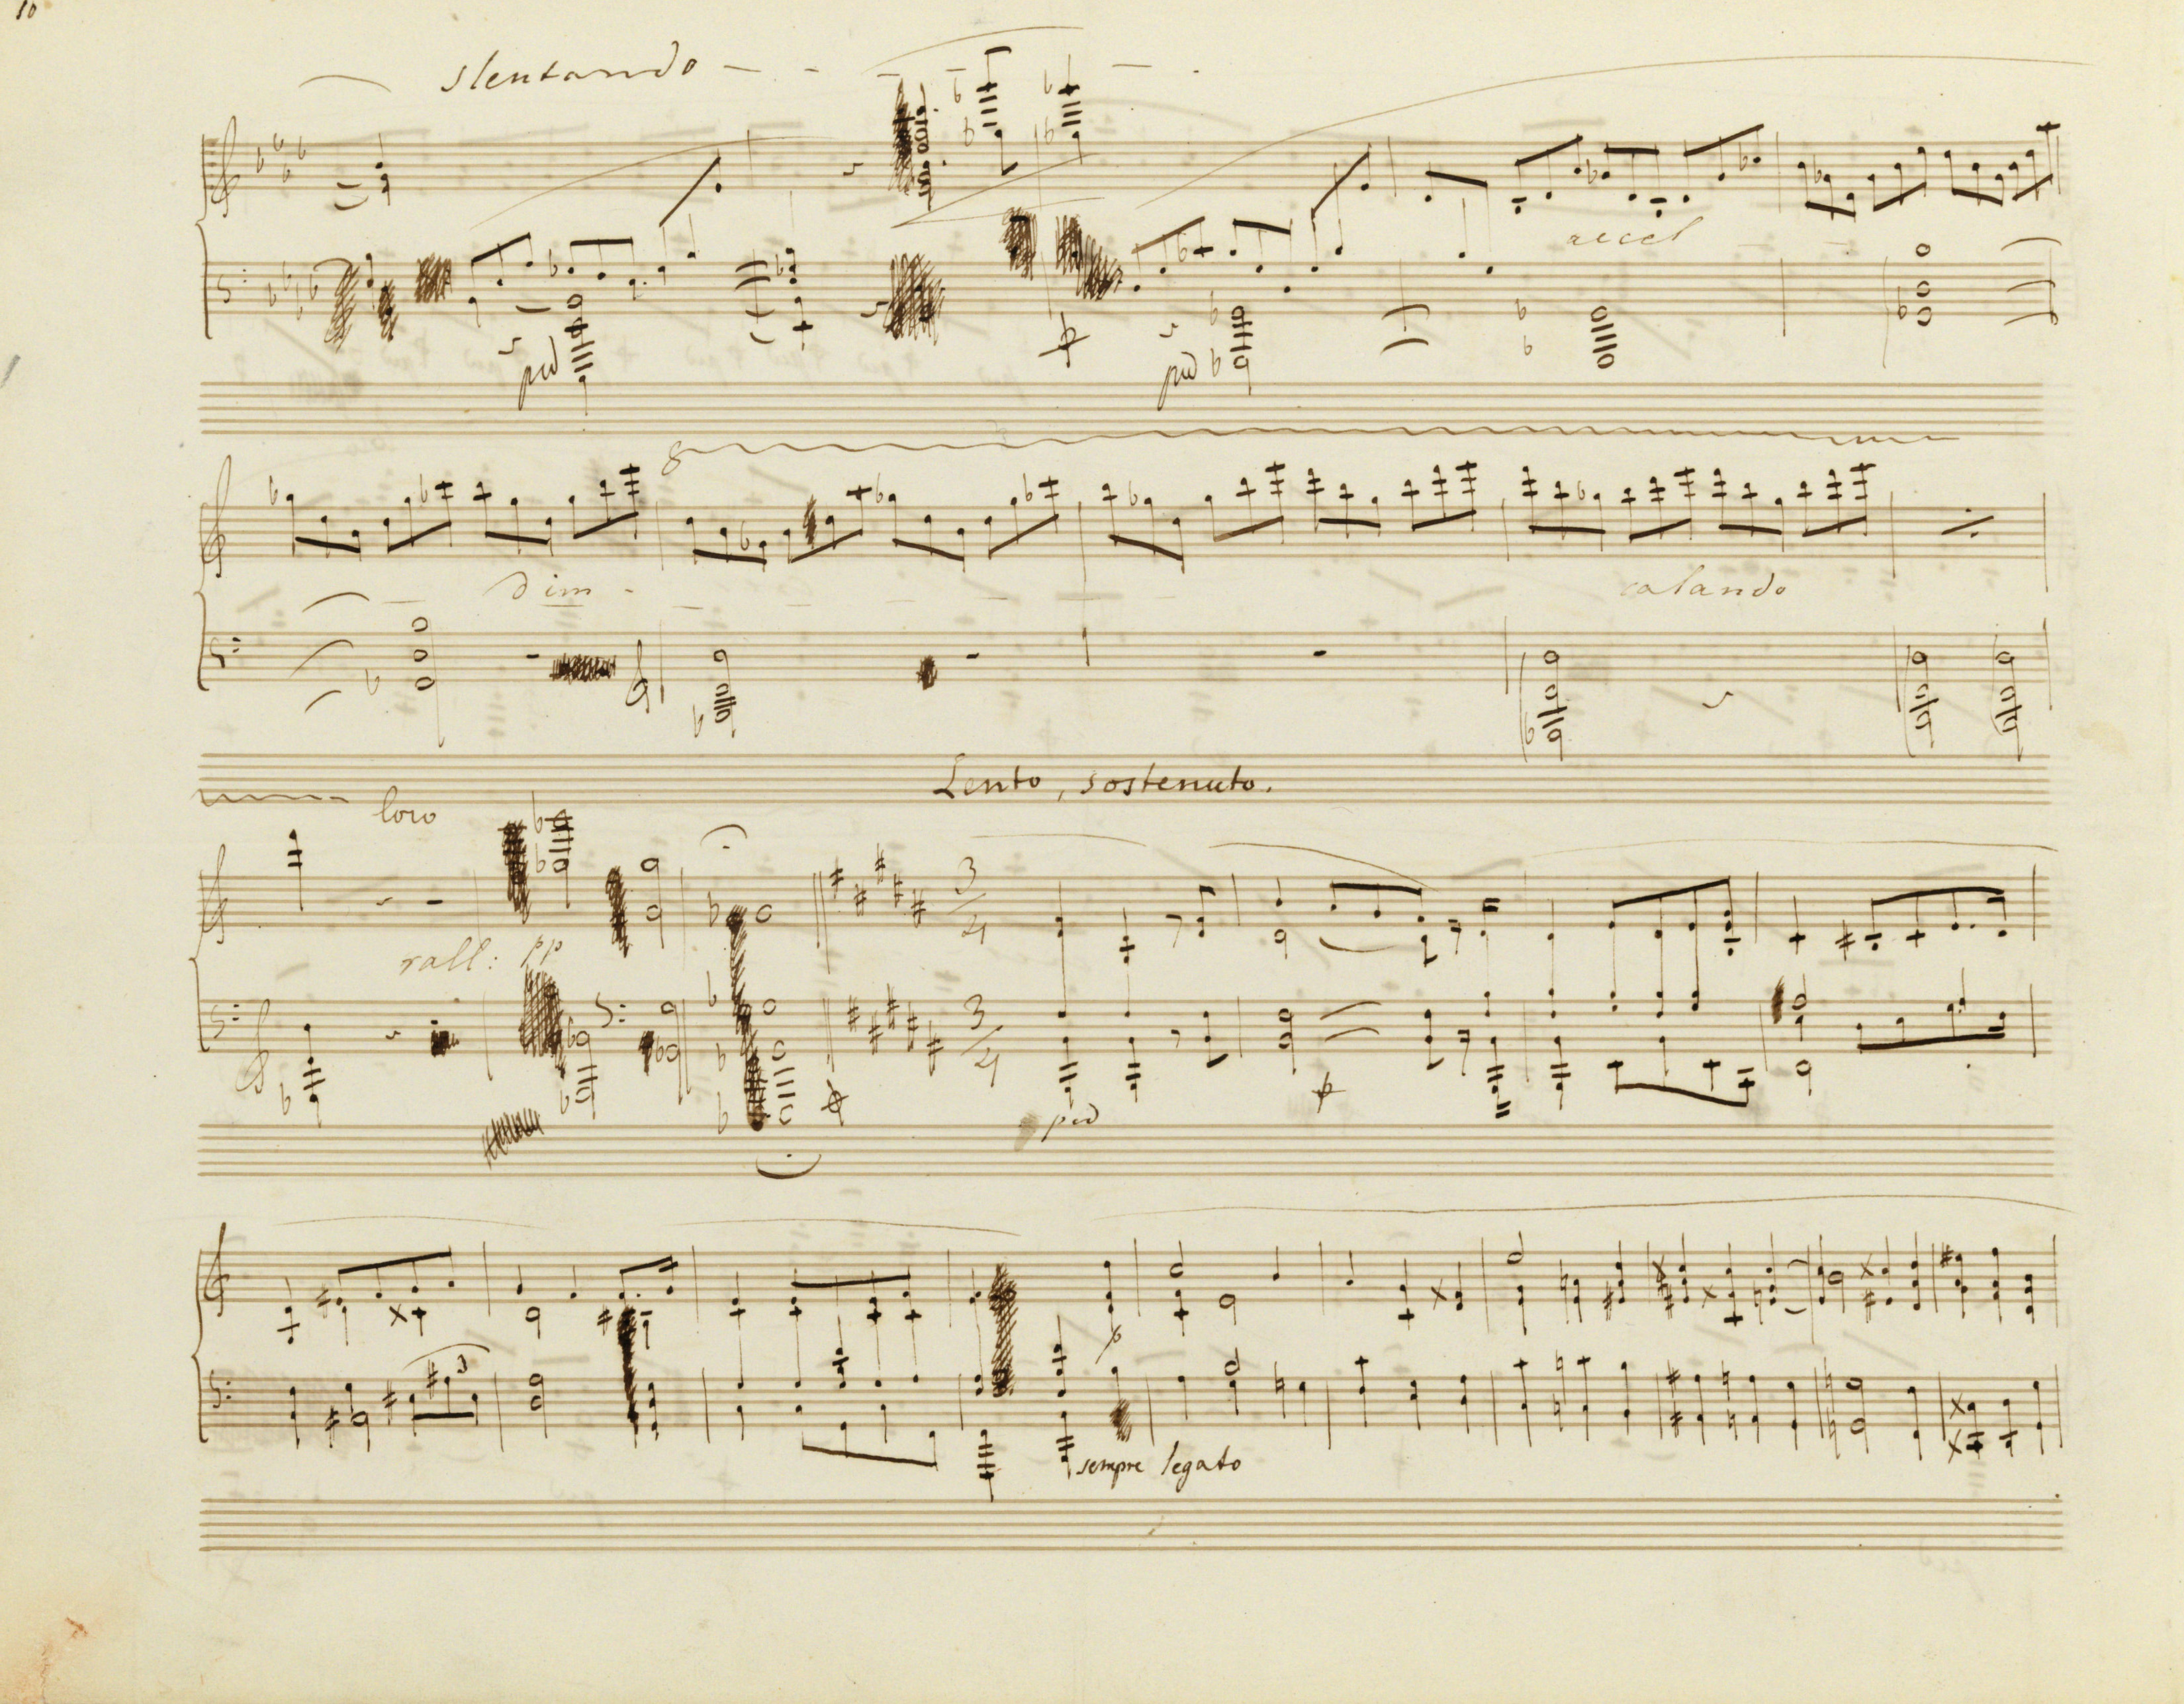 10
slentando
ped
ped
accel
8
dim
calando
Lento, sostenuto.
loco
rall: pp
3/4
3/4
ped
3
sempre legato